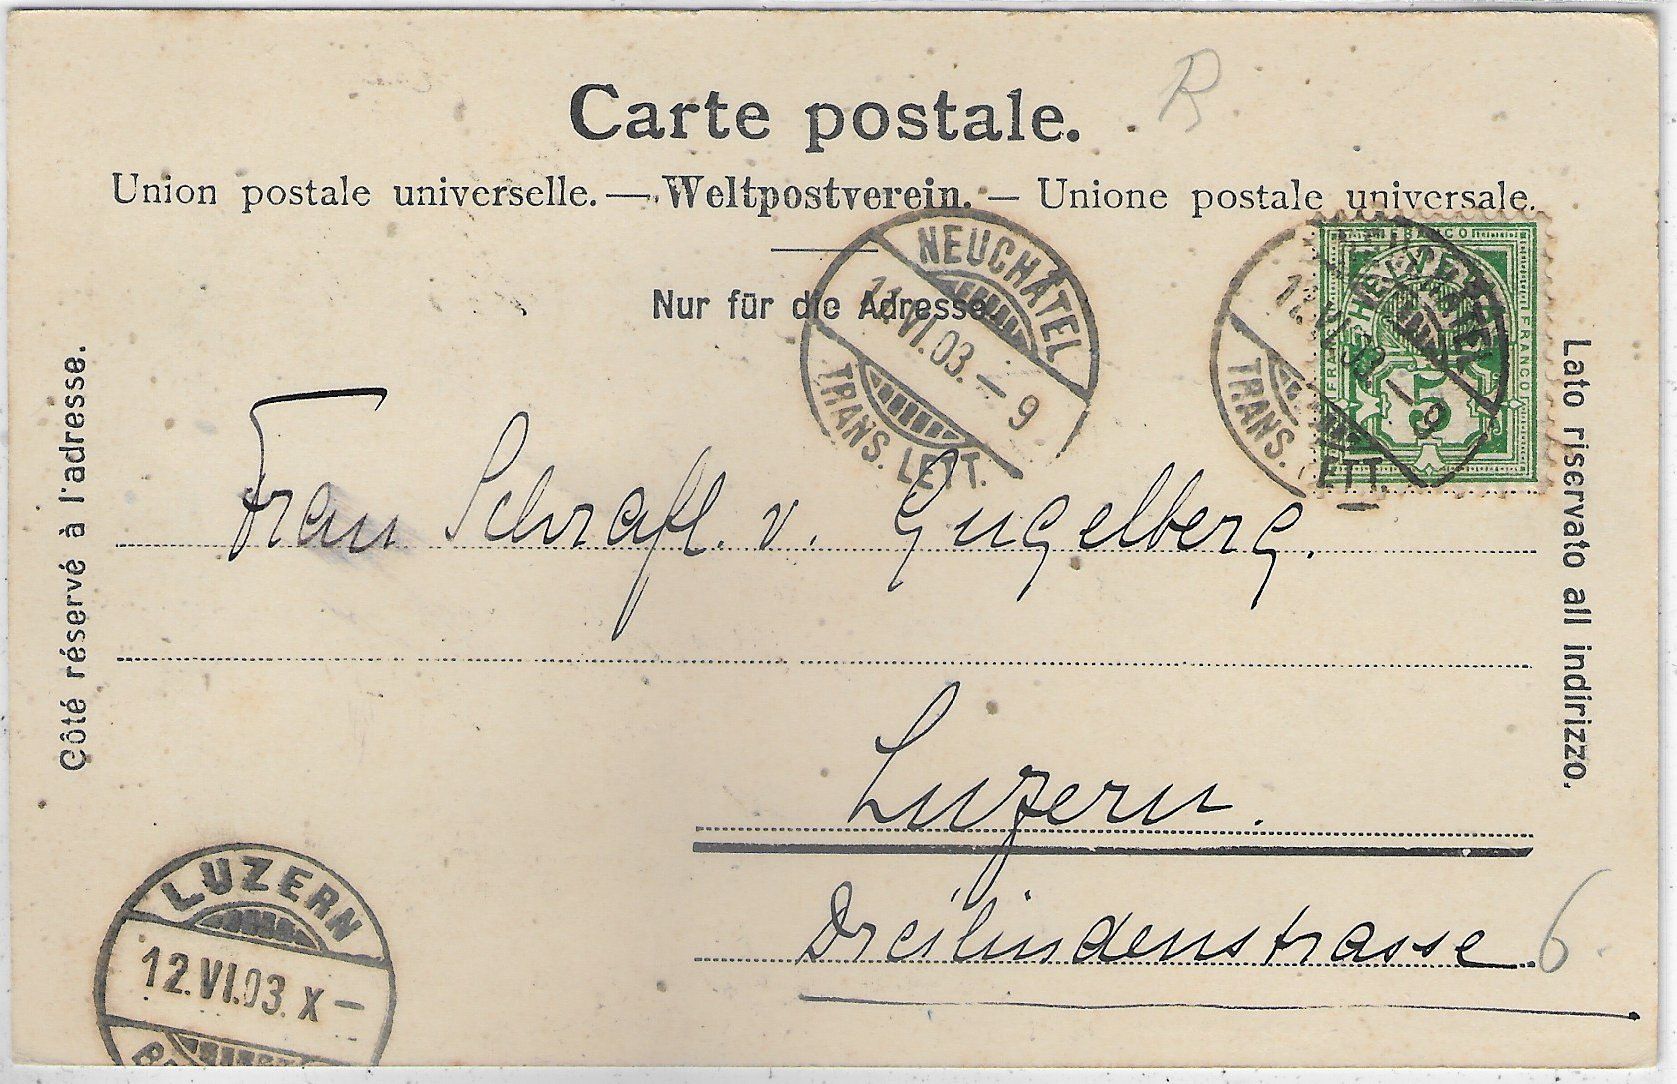 Carte postale.
R
Union postale universelle. — Weltpostverein. — Unione postale universale.
Nur für die Adresse
Côté réservé à l'adresse.
Lato riservato all indirizzo.
NEUCHÂTEL
11.VI.03. — 9
TRANS. LETT.
NEUCHÂTEL
11.VI.03. — 9
TRANS. LETT.
FRANCO
HELVETIA
FRANCO
FRANCO
5
Frau Schrafl. v. Gugelberg.
Luzern.
Dreilindenstrasse 6
LUZERN
12.VI.03. X —